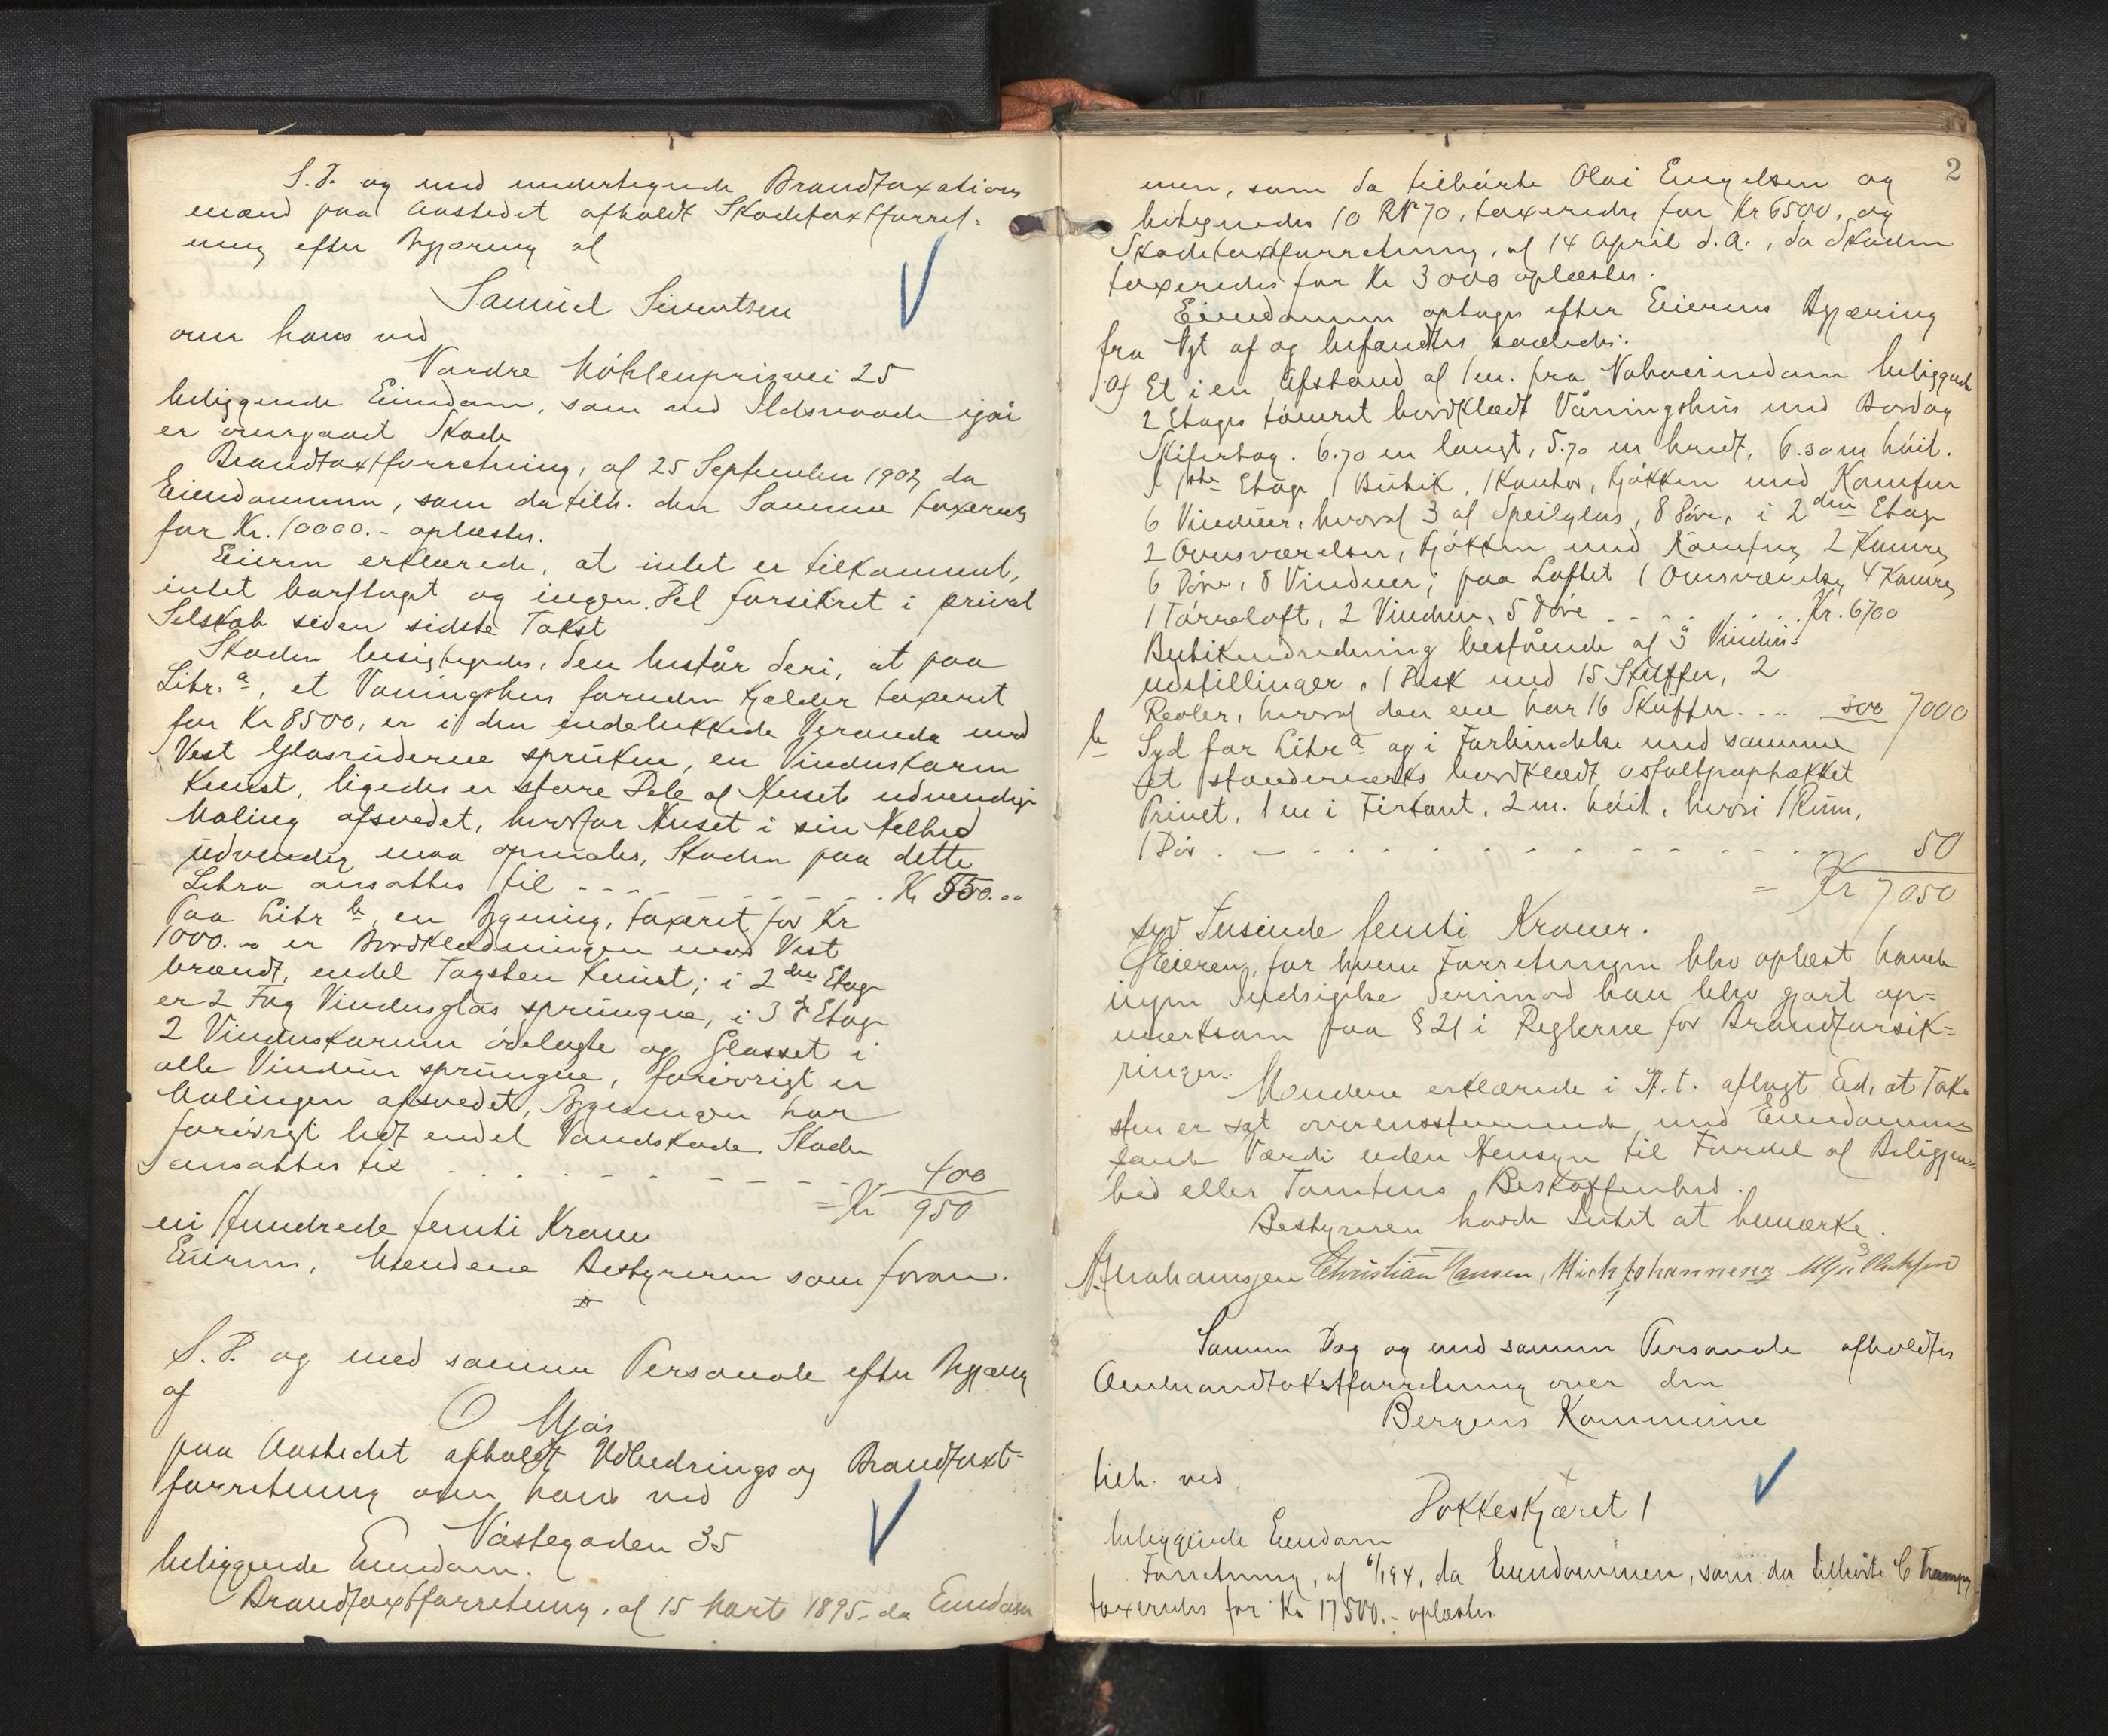 S. D. og med undertegnede Brandtaxations
mænd paa Aastedet afholdt Skadetaxtforret-
ning efter Begjæring af
Samuel Sivertsen
over hans ved
Nordre Møhlenprisvei 25
beliggende Eiendom, som ved Ildsvaade igår
er overgaaet Skade
Brandtaxtforretning, af 25 September 1902, da
Eiendommen, som da tilh. den Samme taxeredes
for Kr. 10000.- oplæstes.
Eieren erklærede, at intet er tilkommet,
intet borttaget og ingen Del forsikret i privat
Selskab siden sidste Takst
Skaden besigtigedes, den består deri, at paa
Litr. a, et Vaaningshus foruden Kjælder taxeret
for Kr 8500, er i den indelukkede Veranda mod
Vest Glasruderne sprukne, en Vinduskarm
knust, ligedes er større Dele af Huset udvendige
Maling afsvedet, hvorfor Huset i sin Helhed
udvendig maa opmales, Skaden paa dette
Litra ansattes til - - - - Kr 550.00
Paa Litr b, en Bygning, taxeret for Kr
1000.00 er Bordklædningen mod Vest
brændt, endel Tagsten knust; i 2den Etage
er 2 Fag Vindusglas sprungne, i 3d Etage
2 Vinduskarme ødelagte og Glasset i
alle Vinduer sprungne, forøvrigt er
Malingen afsvedet, Bygningen har
forøvrigt lidt endel Vandskade. Skaden
ansattes til - - - - 400
= Kr 950
ni Hundrede femti Kroner
Eieren, Mændene Bestyreren som foran.
S. D. og med samme Personale efter Begjæring
af
O Mjøs
paa Aastedet afholdt Udbedrings og Brandtaxt-
forretning over hans ved
Vaskegaden 35
beliggende Eiendom.
Brandtaxtforretning, af 15 Marts 1895, da Eiendom
2
men, som da tilhørte Olai Engelsen og
betegnedes 10 R No 70, taxeredes for Kr 6500, og
Skadetaxtforretning, af 14 April d. A., da Skaden
taxeredes for Kr 3000 oplæstes.
Eiendommen optages efter Eierens Begjæring
fra Nyt af og befandtes saaledes:
a) Et i en Afstand af 1 m. fra Naboeiendom beliggende
2 Etages tømret bordklædt Våningshus med Bord og
Skifertag. 6.70 m langt, 5.70 m bredt, 6.30 m høit.
I 1ste Etage 1 Butik, 1 Kontor, Kjøkken med Komfur
6 Vinduer, hvoraf 3 af Speilglas, 8 Døre, i 2den Etage
2 Ovnsværelser, Kjøkken med Komfur, 2 Kamre,
6 Døre, 8 Vinduer; paa Loftet 1 Ovnsværelse, 4 Kamre,
1 Tørreloft, 2 Vinduer, 5 Døre - - - - Kr. 6700
Butikindredning bestående af 3 Vindus-
udstillinger, 1 Disk med 15 Skuffer, 2
Reoler, hvoraf den ene har 16 Skuffer - - - 300 7000
b Syd for Litr a og i Forbindelse med samme
et standerværks bordklædt, asfaltpaptækket
Privet, 1 m i Firkant, 2 m. høit, hvori 1 Rum,
1 Dør - - - - 50
= Kr 7050
syv Tusinde femti Kroner.
Eieren, for hvem Forretningen blev oplæst havde
ingen Indsigelse derimod han blev gjort op-
mærksom paa § 21 i Reglerne for Brandforsik-
ringen.
Mændene erklærede i H. t. aflagt Ed, at Tak-
sten er sat overensstemmende med Eiendommens
sande Værdi uden Hensyn til Fordel af Beliggen-
hed eller Tomtens Beskaffenhed.
Bestyreren havde Intet at bemærke.
A. Abrahamsen Christian Hansen, Mich Johannesen
Samme Dag og med samme Personale afholdtes
Ombrandtakstforretning over den
Bergens Kommune
tilh. ved
Dokkeskjæret 1
beliggende Eiendom
Forretning, af 6/1 94, da Eiendommen, som da tilhørte C
taxeredes for Kr 17500.- oplæstes.